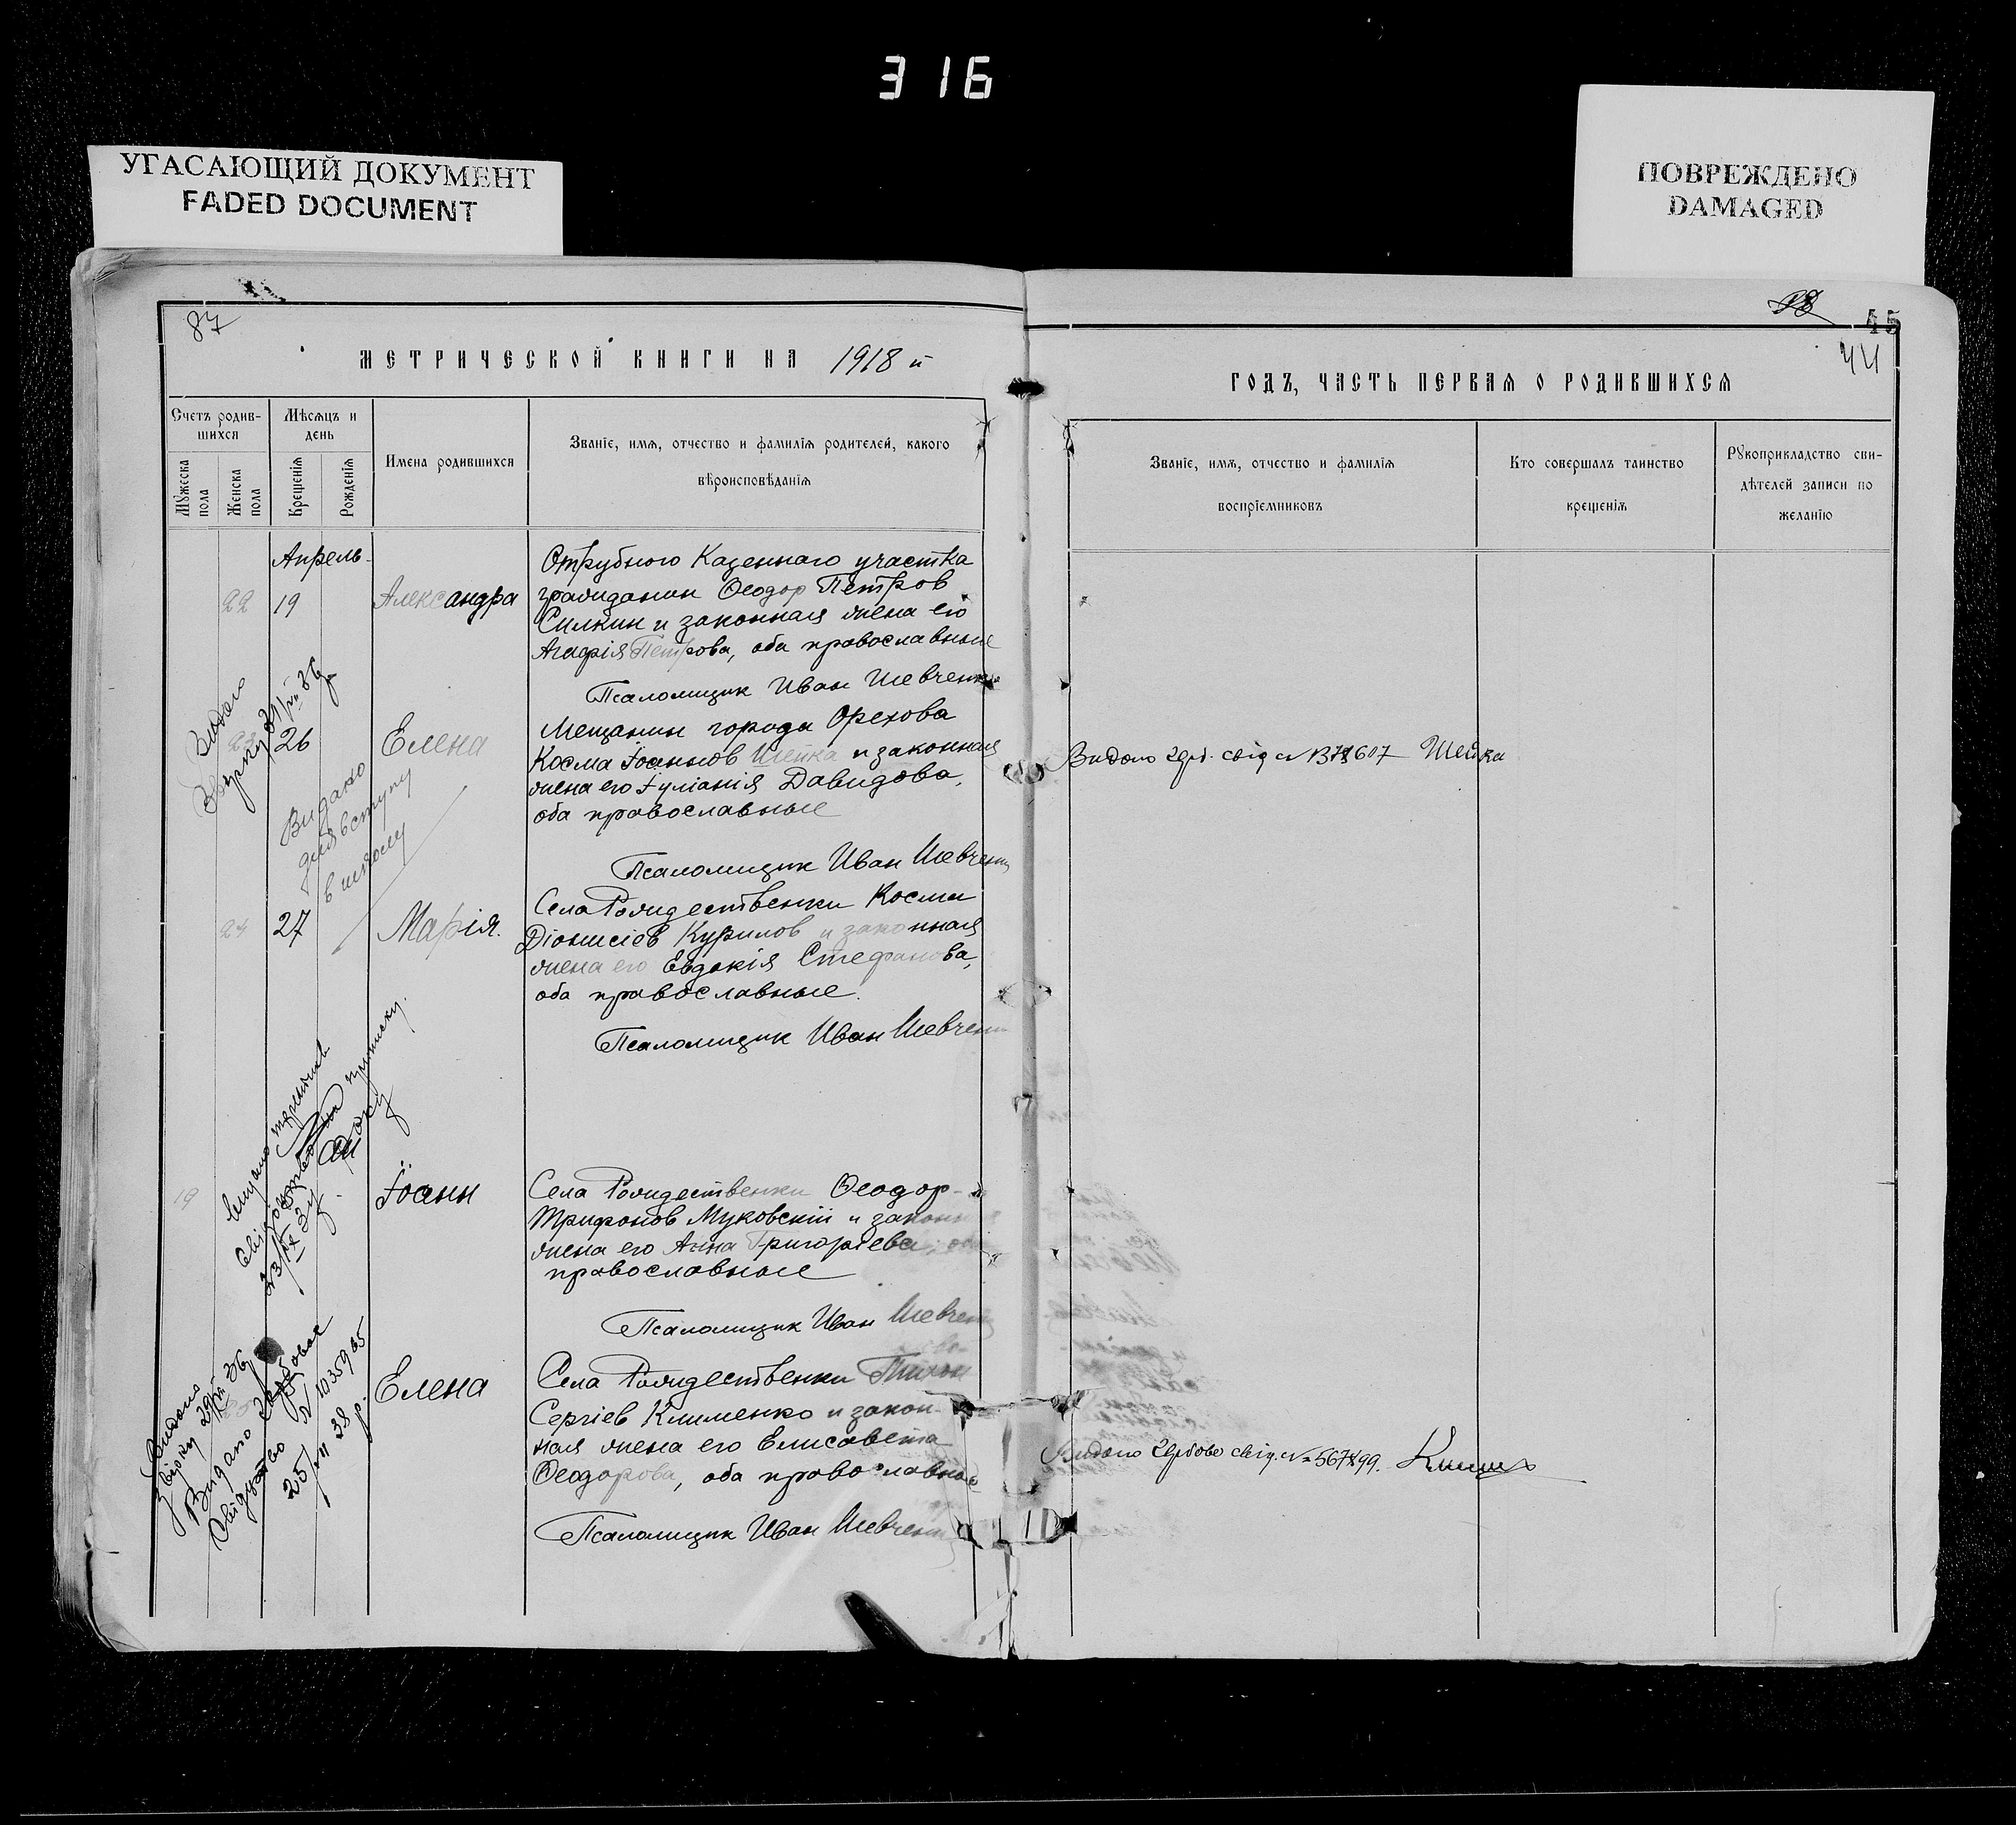 316
УГАСАЮЩИЙ ДОКУМЕНТ
FADED DOCUMENT
ПОВРЕЖДЕНО
DAMAGED
87
МЕТРИЧЕСКОЙ КНИГИ НА 1918 й
Счетъ родив-
шихся
Мѣсяцъ и
день
Мужеска
пола
Женска
пола
Крещенія
Рожденія
Имена родившихся
Званіе, имя, отчество и фамилія родителей, какого
вѣроисповѣданія
Апрель
22 19 Александра
Отрубного Казеннаго участка
гражданин Ѳеодор Петров
Силкин и законная жена его
Агафія Петрова, оба православные
Псаломщик Иван Шевченко
23 26 Елена
Мещанин города Орехова
Косма Іоаннов Шейка и законная
жена его Іуліанія Давидова,
оба православные
Псаломщик Иван Шевченко
Видано
31/III 36
Видано
для вступу
в школу
24 27 Марія.
Села Рождественки Косма
Діонисіев Курилов и законная
жена его Евдокія Стефанова,
оба православные.
Псаломщик Иван Шевчен
19 Іоанн
Села Рождественки Ѳеодор
Трифонов Муковскій и законн
жена его Анна Григорієва, оба
православные
Псаломщик Иван Шевчен
приписку.
25 Елена
Села Рождественки Тихон
Сергіев Клименко и закон-
ная жена его Елисавета
Ѳеодорова, оба православные
Псаломщик Иван Шевчен
Видано
Видано гербовое
свідоцтво № 1035965
25/VII 38 р.
18
45
44
ГОДЪ, ЧАСТЬ ПЕРВАЯ О РОДИВШИХСЯ
Званіе, имя, отчество и фамилія
воспріемниковъ
Кто совершалъ таинство
крещенія
Рукоприкладство сви-
дѣтелей записи по
желанію
Видано герб. свід Шейка
Видано гербове свід. № 567499.